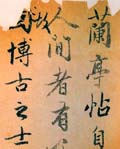 蘭亭帖自
人間者有
故
博古之士